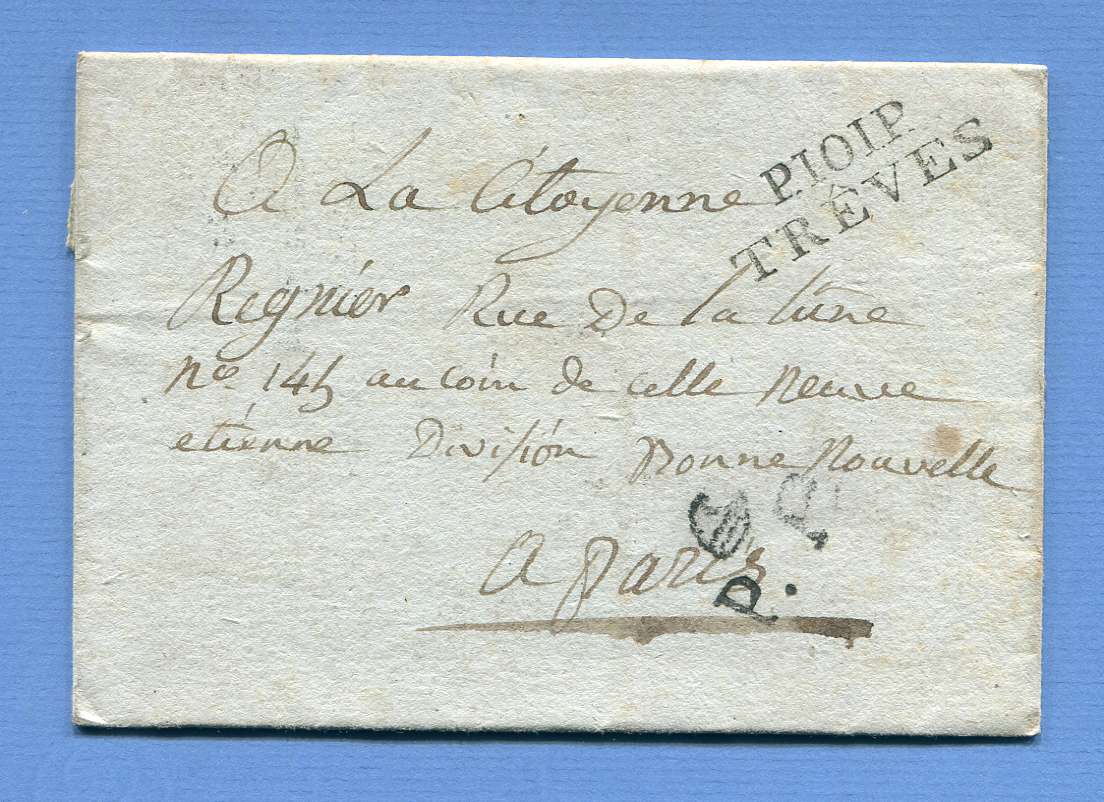 P.101.P.
TRÊVES
A La Citoyenne
Regnier Rue De la lune
nº 145 au coin de celle neuve
etienne Division Bonne Nouvelle
a paris
P.
P.